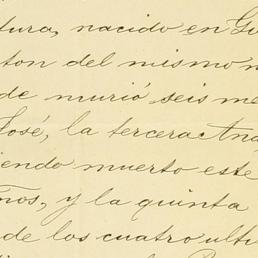 tura, nacido en Gu
ton del mismo n
de murió seis me
José, la tercera An
iendo muerto este
ños, y la quinta
de los cuatro ulti